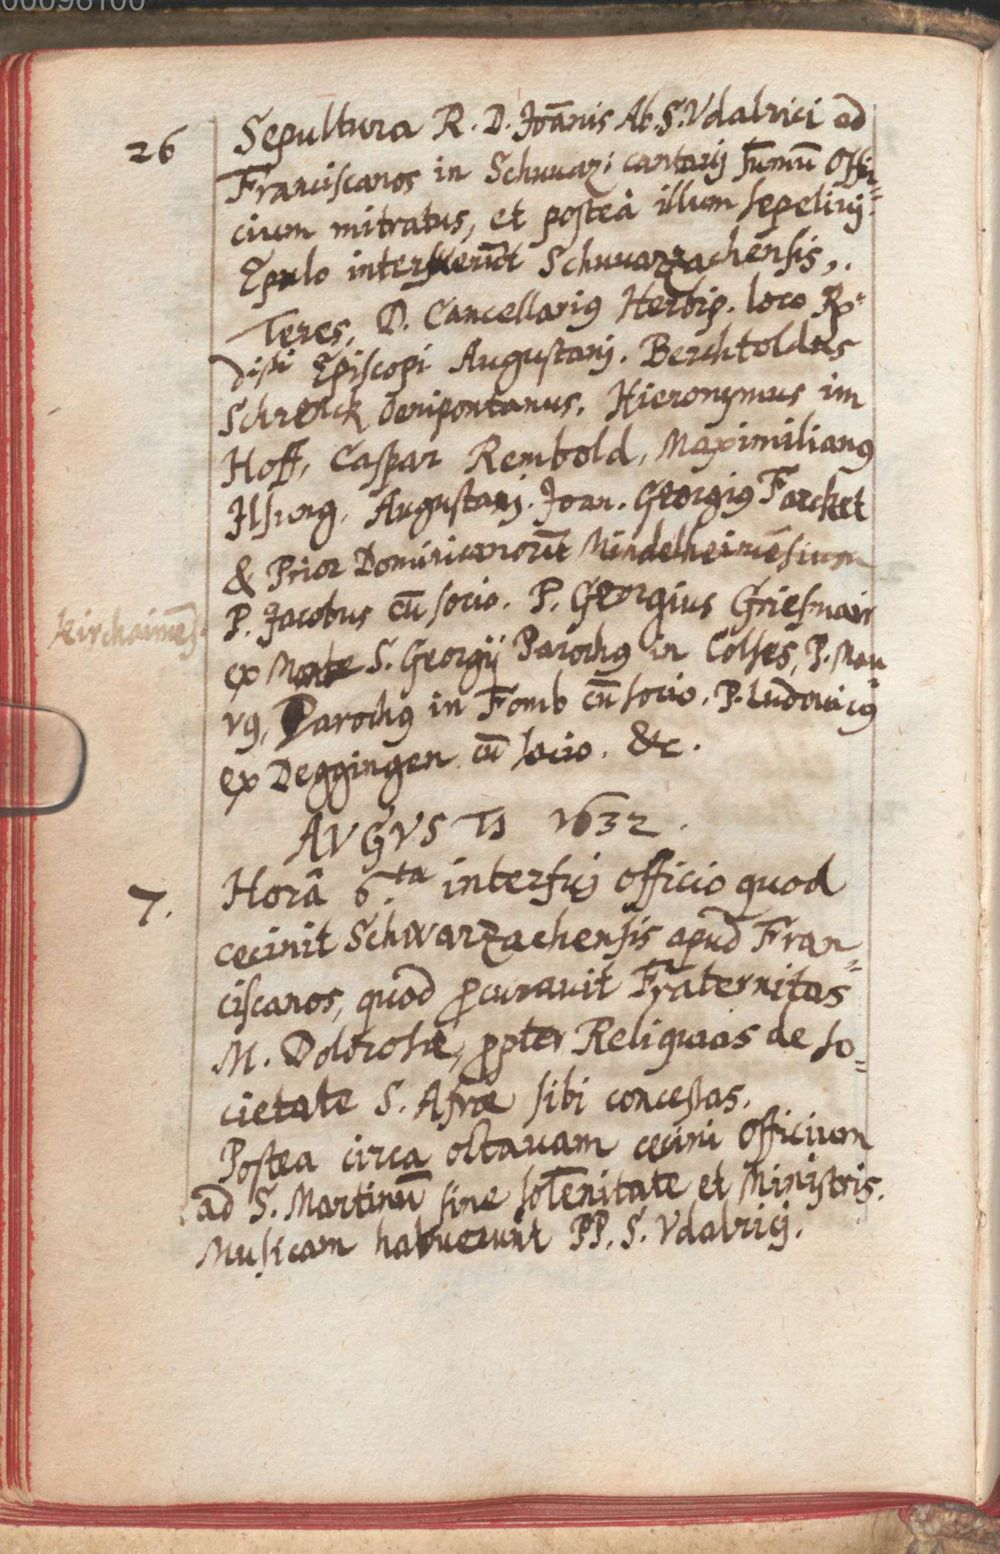 00096100
26 Sepultura R. D. Joānis Ab. S. Vdalrici ad
Franciscanos in Schuuaz: cantavij sumū Offi-
cium mitratus, et posteà illum sepelivij.
Epulo interfuerūt Schuuarzachensis,
D. Cancellarig Herbip. loco R
Episcopi Augustani. Berchtoldus
Schrenck Oenipontanus. Hieronymus im
Hoff, Caspar Rembold, Maximiliang
Ilsung. Augustani. Joan. Georgig
& Prior Dominicanorū Mindelheimēsium
P. Jacobus cū socio. P. Georgius Griesmair
Kirchaimēs.
ex Monte S. Georgij Parochg in P. Mau-
rg, Parochg in Fomb cū socio. P. Ludouicg
ex Deggingen cū socio. &c.
AVGVSTI 1632.
7. Horâ 6.ta interfui officio quod
cecinit Schwarzachensis apud Fran-
ciscanos, quod procurauit Fraternitas
M. Dolorosae, propter Reliquias de so-
cietate S. Afrae sibi concessas.
Postea circa octauam cecini Officium
ad S. Martinū sine solēnitate et Ministris.
Musicam habuerunt PP. S. Vdalrici.